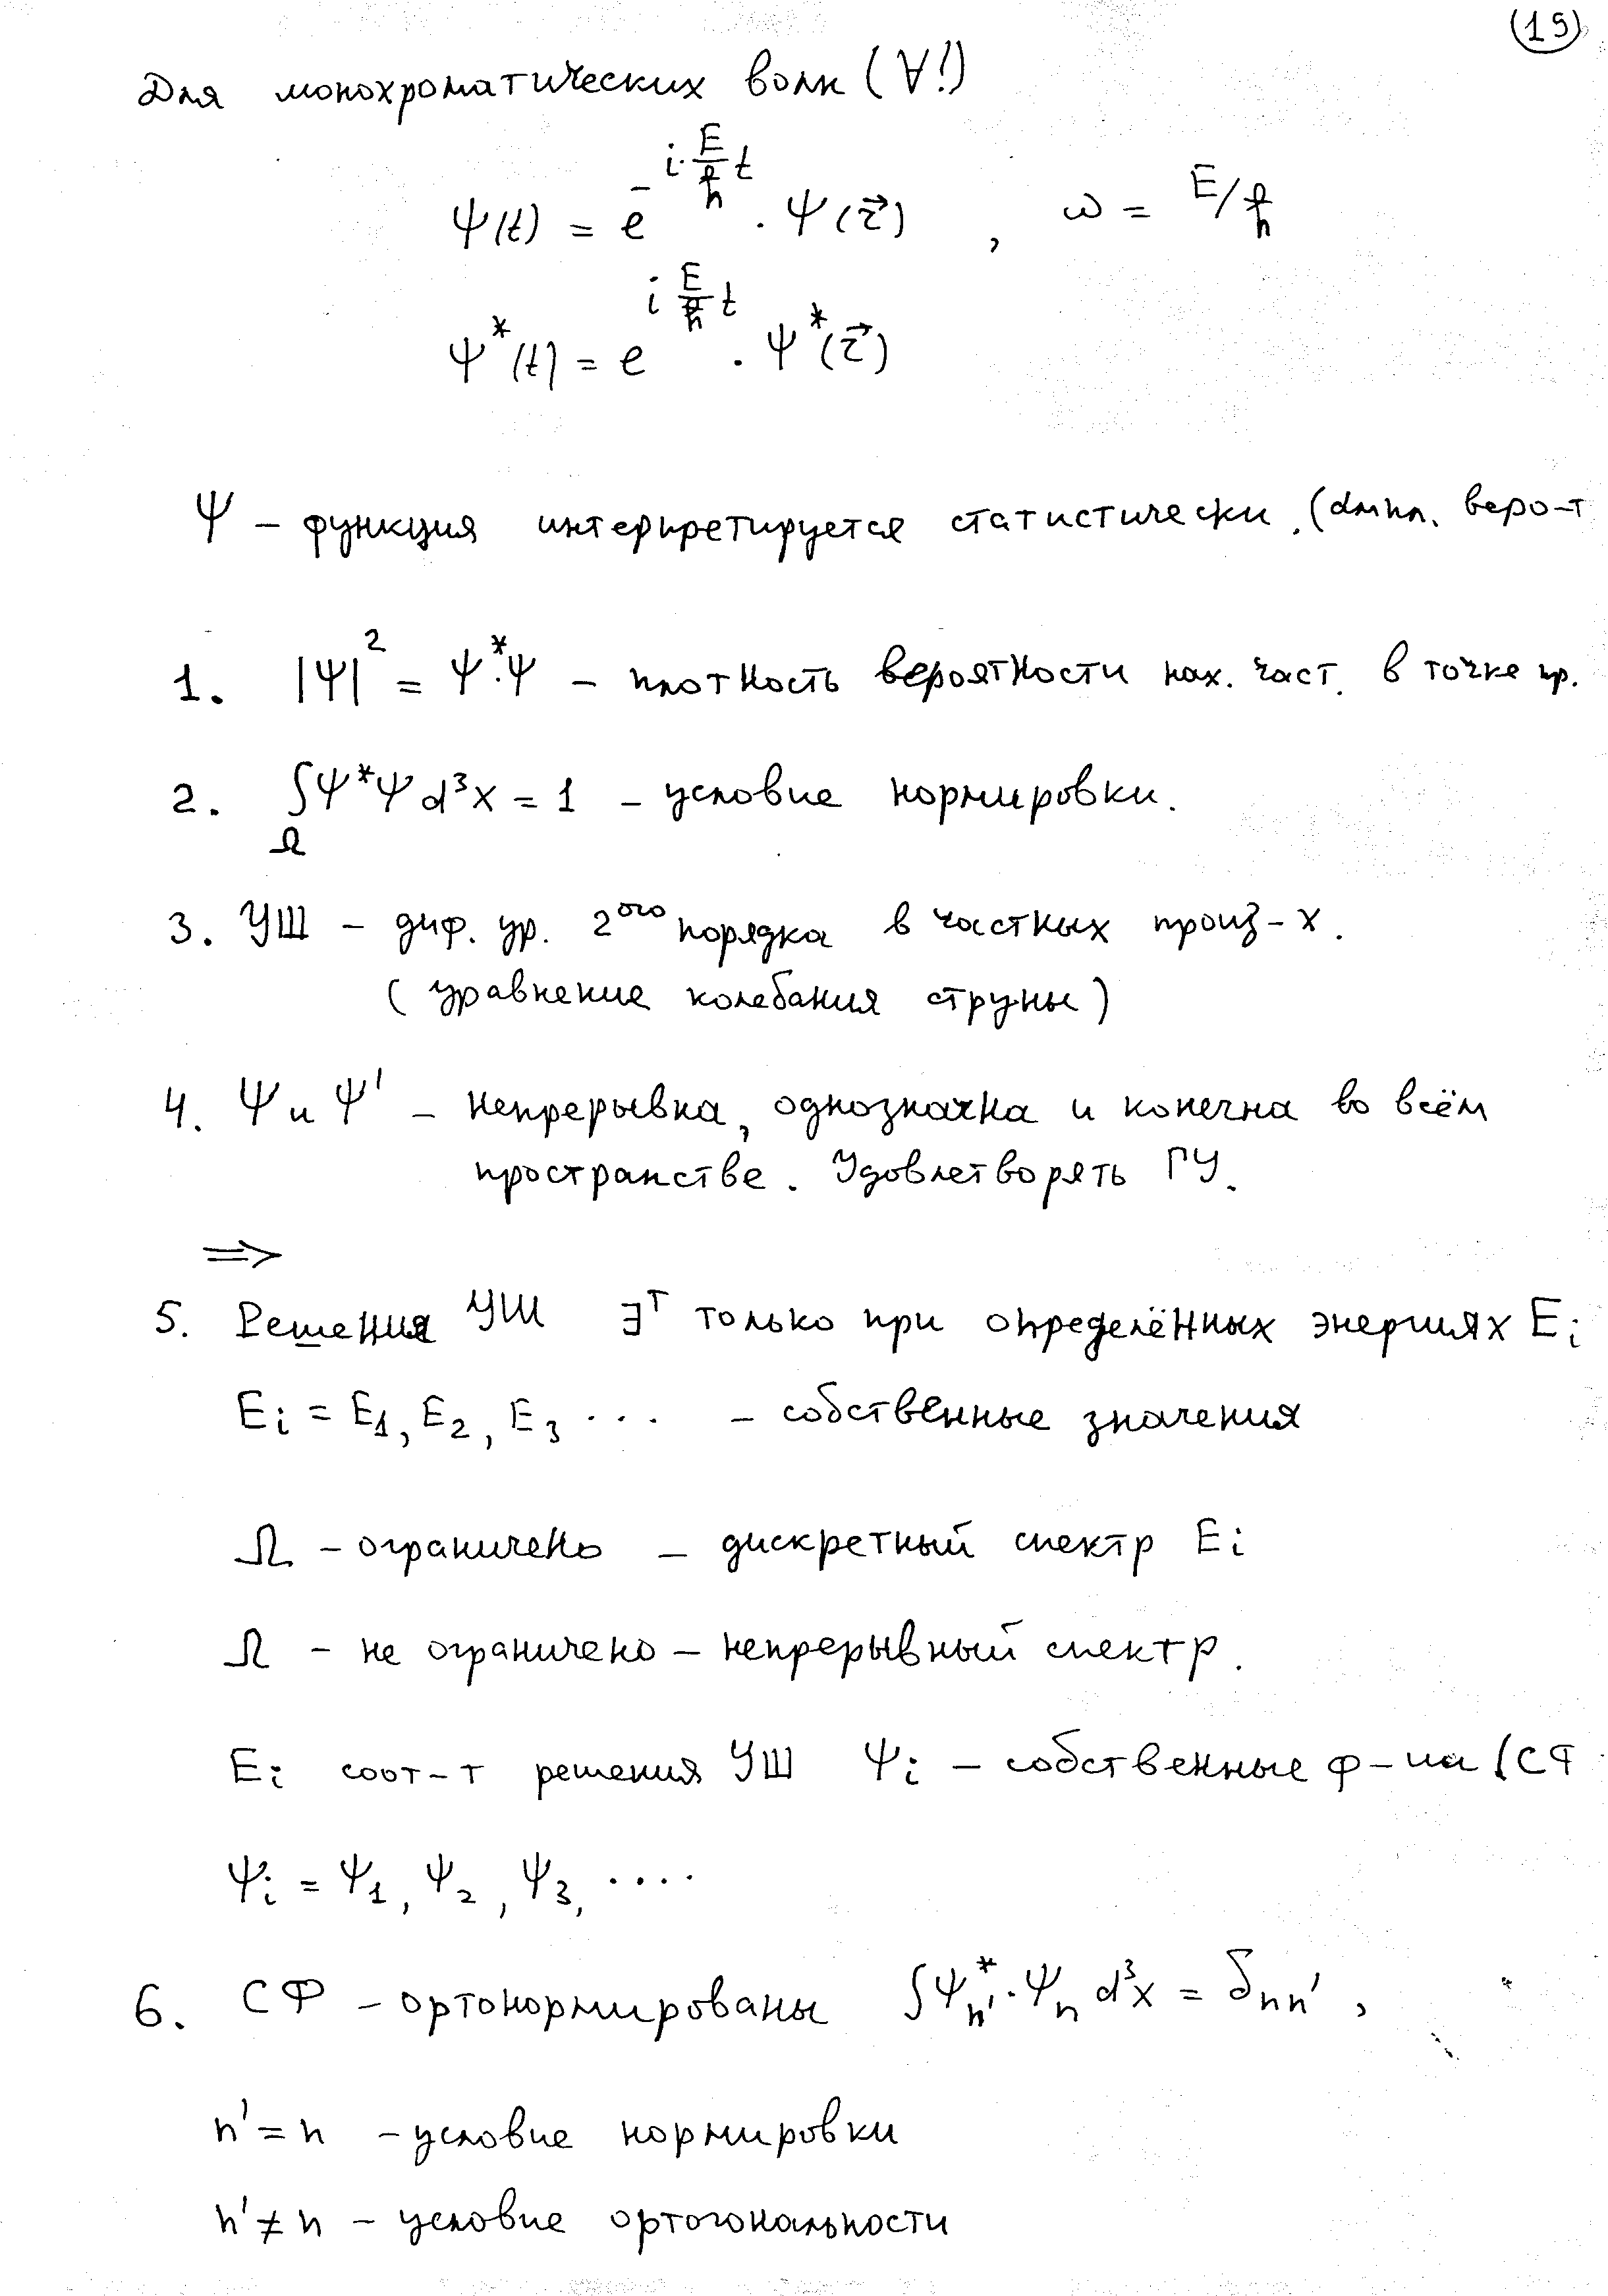 (19)
Для монохроматических волн (∀!)
Ψ(t) = e^{-i·\frac{E}{ℏ}t} · Ψ(\vec{r}) , ω = E/ℏ
Ψ*(t) = e^{i\frac{E}{ℏ}t} · Ψ*(\vec{r})
Ψ – функция интерпретируется статистически. (ампл. веро-т
1. |Ψ|² = Ψ*·Ψ – плотность вероятности нах. част. в точке пр.
2. ∫_Ω Ψ*Ψ d³x = 1 – условие нормировки.
3. УШ – диф. ур. 2^{ого} порядка в частных произ-х.
(уравнение колебания струны)
4. Ψ и Ψ' – непрерывна, однозначна и конечна во всём
пространстве. Удовлетворять ГУ.
⇒
5. Решения УШ ∃^т только при определённых энергиях E_i
E_i = E_1, E_2, E_3 ... – собственные значения
Ω – ограничено – дискретный спектр E_i
Ω – не ограничено – непрерывный спектр.
E_i соот-т решения УШ Ψ_i – собственные ф-ии (СФ
Ψ_i = Ψ_1, Ψ_2, Ψ_3, ....
6. СФ – ортонормированы ∫Ψ*_{n'}·Ψ_n d³x = δ_{nn'} ,
n' = n – условие нормировки
n' ≠ n – условие ортогональности